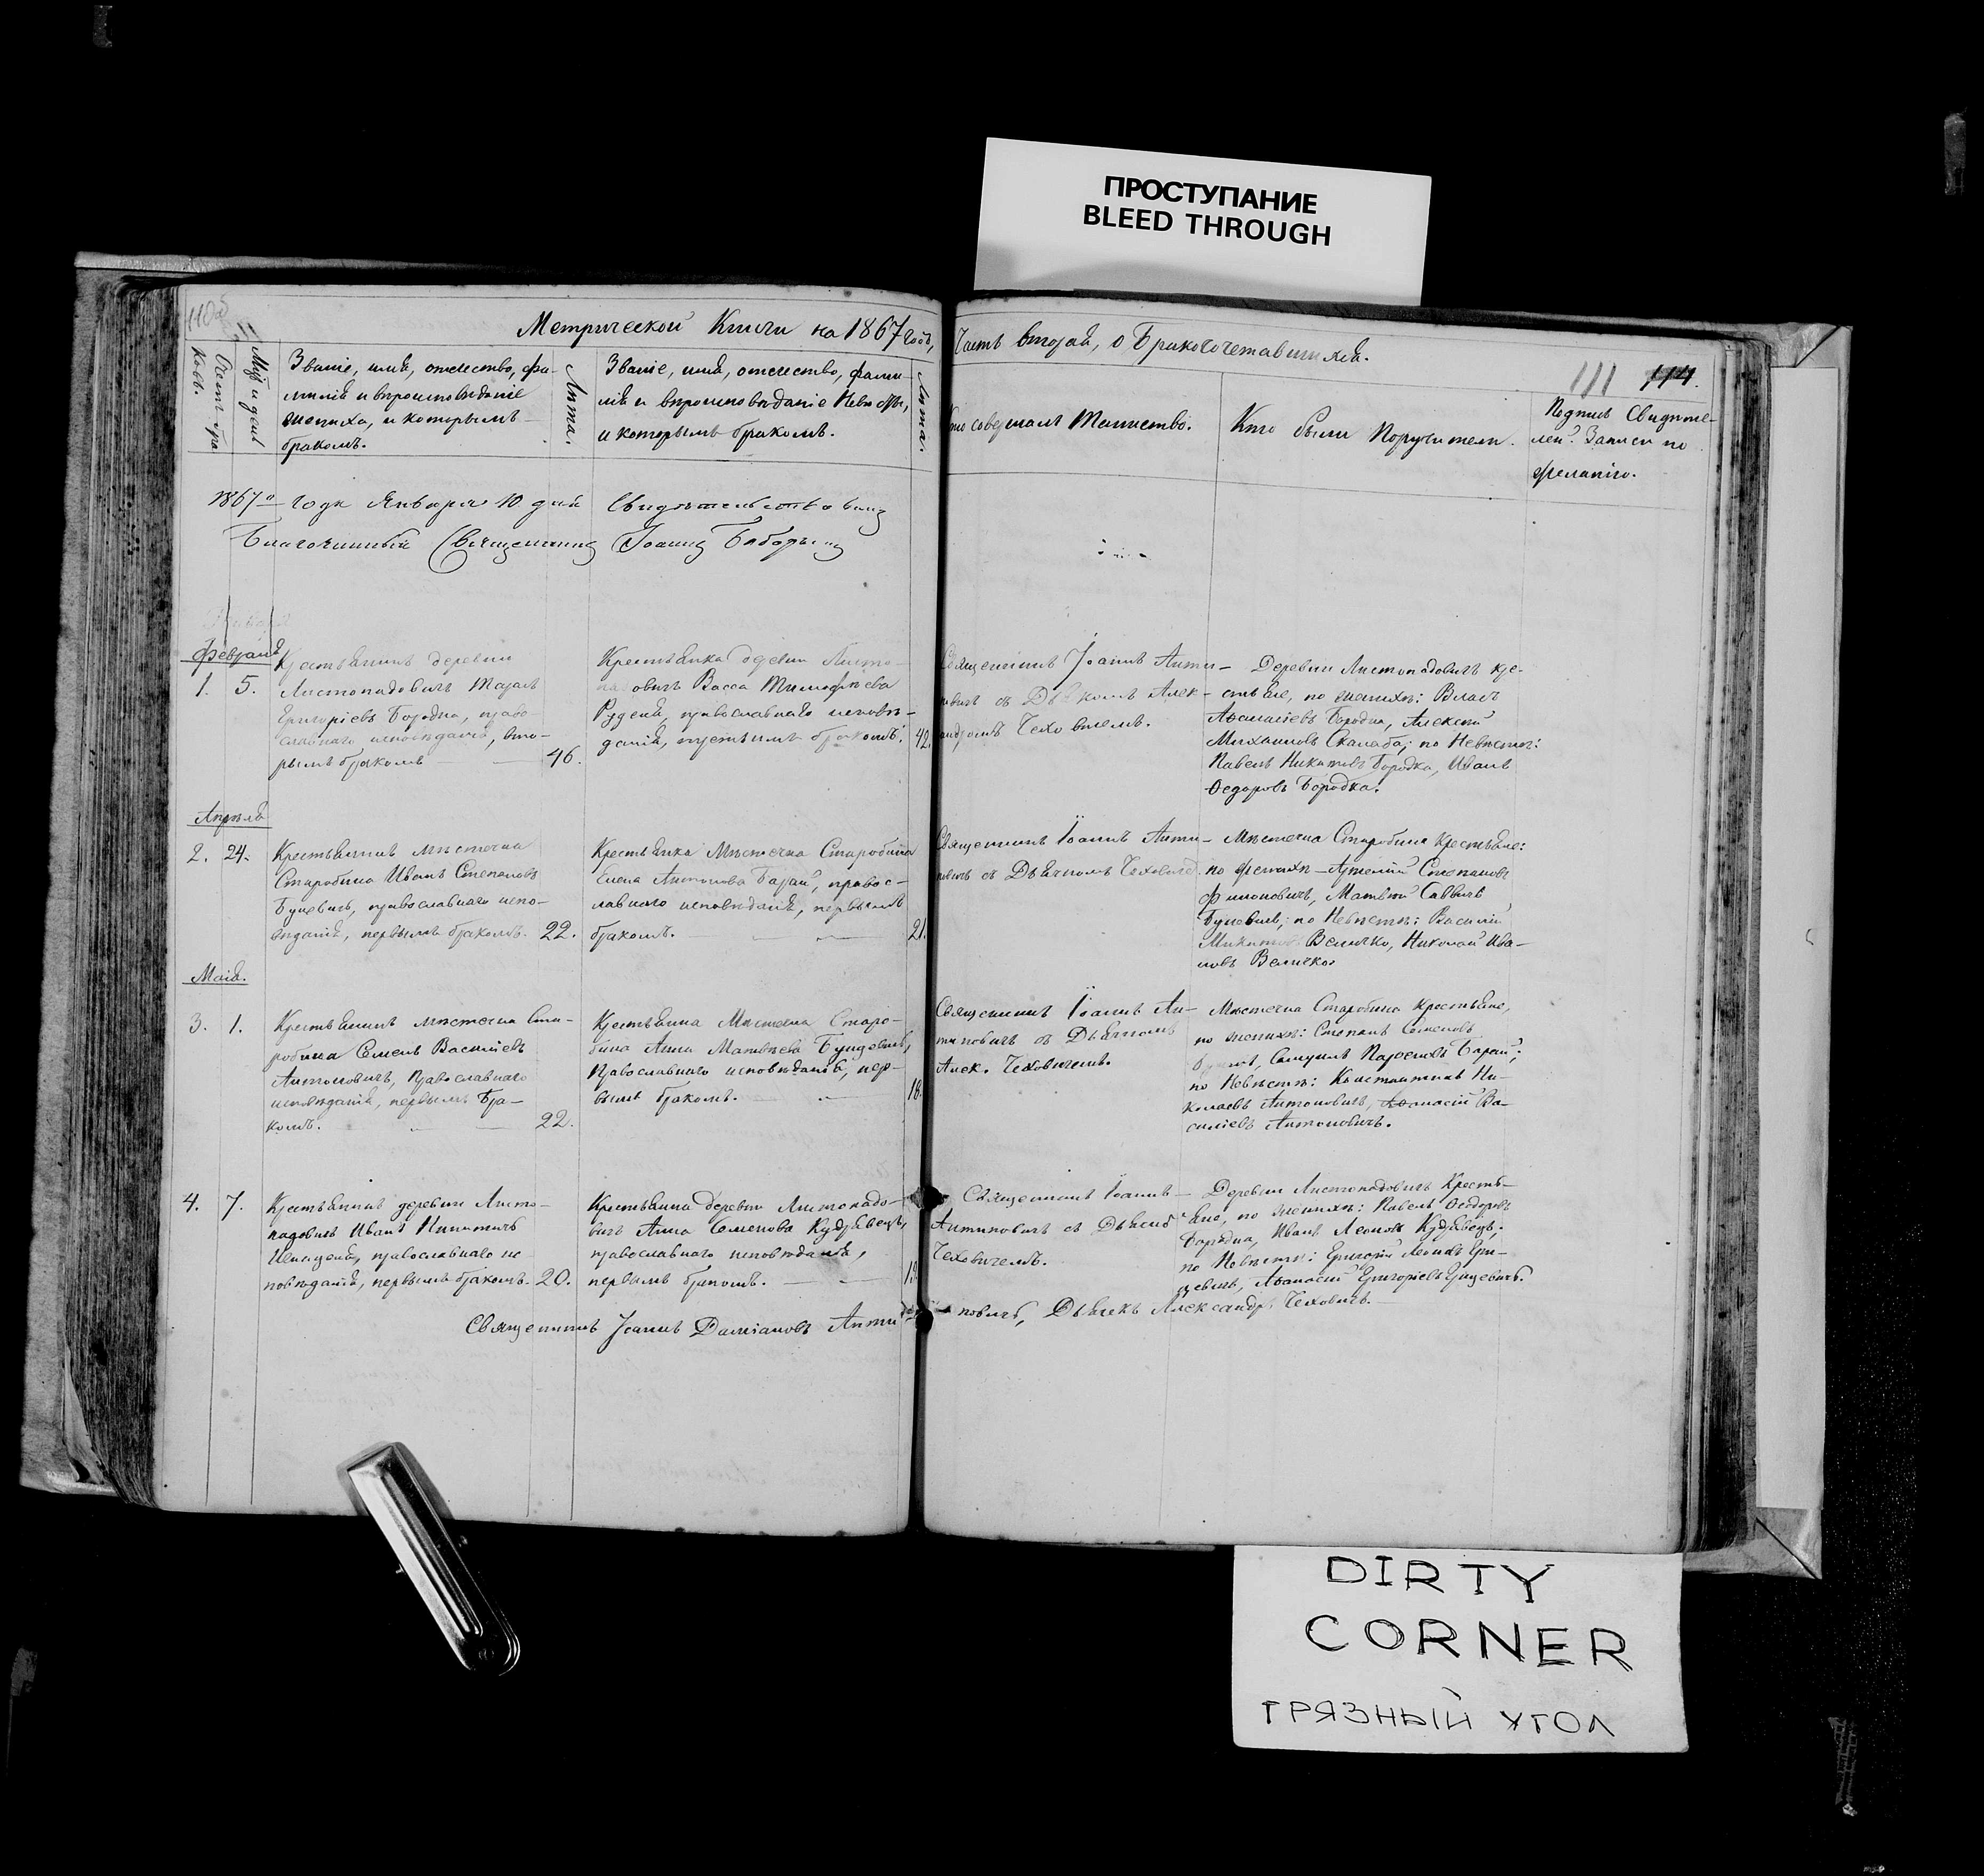 ПРОСТУПАНИЕ
BLEED THROUGH
Метрической Книги на 1867 годъ,
Часть вторая, о бракосочетавшихся.
111 114.
Счетъ бра-
ковъ.
Мѣс. и день
Званіе, имя, отчество, фа-
милія и вѣроисповѣданіе
жениха, и которымъ
бракомъ.
Лѣта.
Званіе, имя, отчество, фами-
лія и вѣроисповѣданіе Невѣсты,
и которымъ бракомъ.
Лѣта.
Кто совершалъ Таинство.
Кто были Поручители.
Подпись Свидѣте-
лей Записи по
желанію.
1867го года Января 10 дня Свидѣтельствовалъ
Благочинный Священникъ Іоаннъ
Февраля
1. 5.
Крестьянинъ деревни
Листопадовичъ
Григоріевъ Бородка, право-
славнаго исповѣданія, вто-
рымъ бракомъ 46.
Крестьянка деревни Листо-
падовичъ Васса Тимофѣева
Рудени, православнаго исповѣ-
данія, третьимъ бракомъ. 42.
Священникъ Іоаннъ Анти-
повичъ съ Дьячкомъ Алек-
андромъ Чеховичемъ.
Деревни Листопадовичъ кре-
стьяне, по женихѣ: Власъ
Аѳанасіевъ Бородка, Алексѣй
Михаиловъ Скалаба; по Невѣстѣ:
Павелъ Никитовъ Бородка, Иванъ
Ѳедоровъ Бородка.
Апрѣля
2. 24.
Крестьянинъ мѣстечка
Старобина Иванъ Степановъ
Буцевичъ, православнаго испо-
вѣданія, первымъ бракомъ. 22.
Крестьянка Мѣстечка Старобина
Елена Антонова Баран, правос-
лавнаго исповѣданія, первымъ
бракомъ. 21.
Священникъ Іоаннъ Анти-
повичъ съ Дьячкомъ Чеховичемъ.
Мѣстечка Старобина Крестьяне:
по женихѣ Артемій Степановъ
Филоновичъ, Матвѣй Саввичъ
Буцевичъ; по Невѣстѣ: Василій
Микитовъ Величко, Николай Ива-
новъ Величко.
Маія.
3. 1.
Крестьянинъ мѣстечка Ста-
робина Семенъ Василіевъ
Антоновичъ, Православнаго
исповѣданія, первымъ Бра-
комъ. 22.
Крестьянка Мѣстечка Старо-
бина Анна Матвѣева
Православнаго исповѣданія, пер-
вымъ бракомъ. 18.
Священникъ Іоаннъ Ан-
типовичъ съ Дьячкомъ
Алек. Чеховичемъ.
Мѣстечка Старобина Крестьяне,
по женихѣ: Степанъ Семеновъ
Самуилъ Баран;
по Невѣстѣ: Константинъ Ни-
колаевъ Антоновичъ, Аѳанасій Ва-
силіевъ Антоновичъ.
4. 7.
Крестьянинъ деревни Листо-
падовичъ Иванъ Никитинъ
православнаго ис-
повѣданія, первымъ бракомъ. 20.
Крестьянка деревни Листопадо-
вичъ Анна Семенова Кудрявецъ,
православнаго исповѣданія,
первымъ бракомъ.
Священникъ Іоаннъ
Антиповичъ съ Дьячкомъ
Чеховичемъ.
Деревни Листопадовичъ Кресть-
яне, по женихѣ: Павелъ Ѳеодоровъ
Бородка, Иванъ Леоновъ Кудрявецъ;
по Невѣстѣ: Григорій Леоновъ Гри-
цевичъ, Аѳанасій Григоріевъ Грицевичъ.
Священникъ Іоаннъ Даміановъ Анти-
повичъ, Дьячекъ Александръ Чеховичъ.
DIRTY
CORNER
ГРЯЗНЫЙ УГОЛ